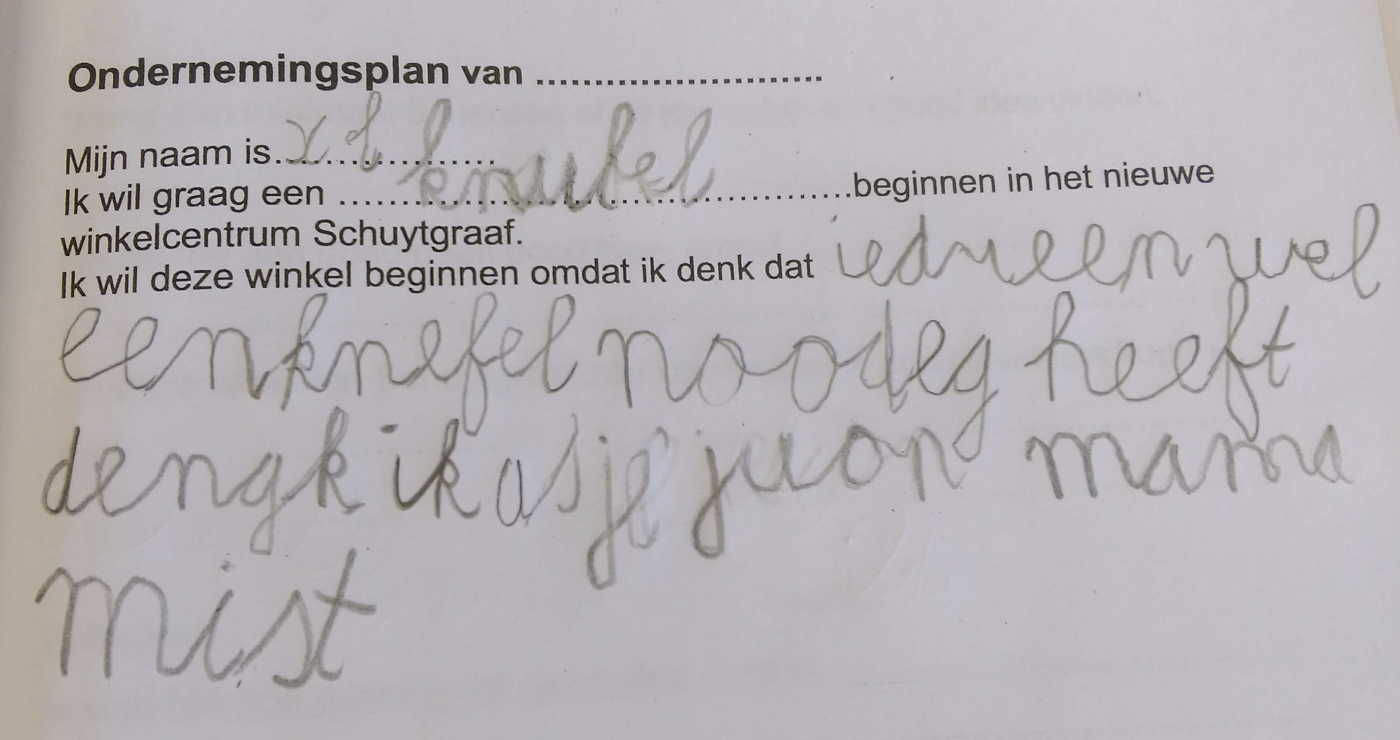 Ondernemingsplan van ........................
Mijn naam is...................
Ik wil graag een ............................................beginnen in het nieuwe
winkelcentrum Schuytgraaf.
Ik wil deze winkel beginnen omdat ik denk dat iedreen wel
een knefel noodeg heeft
dengk ik as je je mama
mist